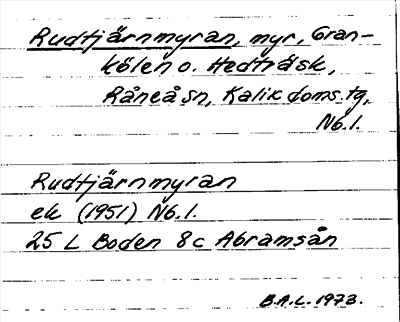 Rudtjärnmyran, myr, Gran-
kölen o. Hedträsk,
Råneå sn, Kalix doms. tg,
Nb. l.
Rudtjärnmyran
ek (1951) Nb. l.
25 L Boden 8c Abramsån
B.A.L. 1973.